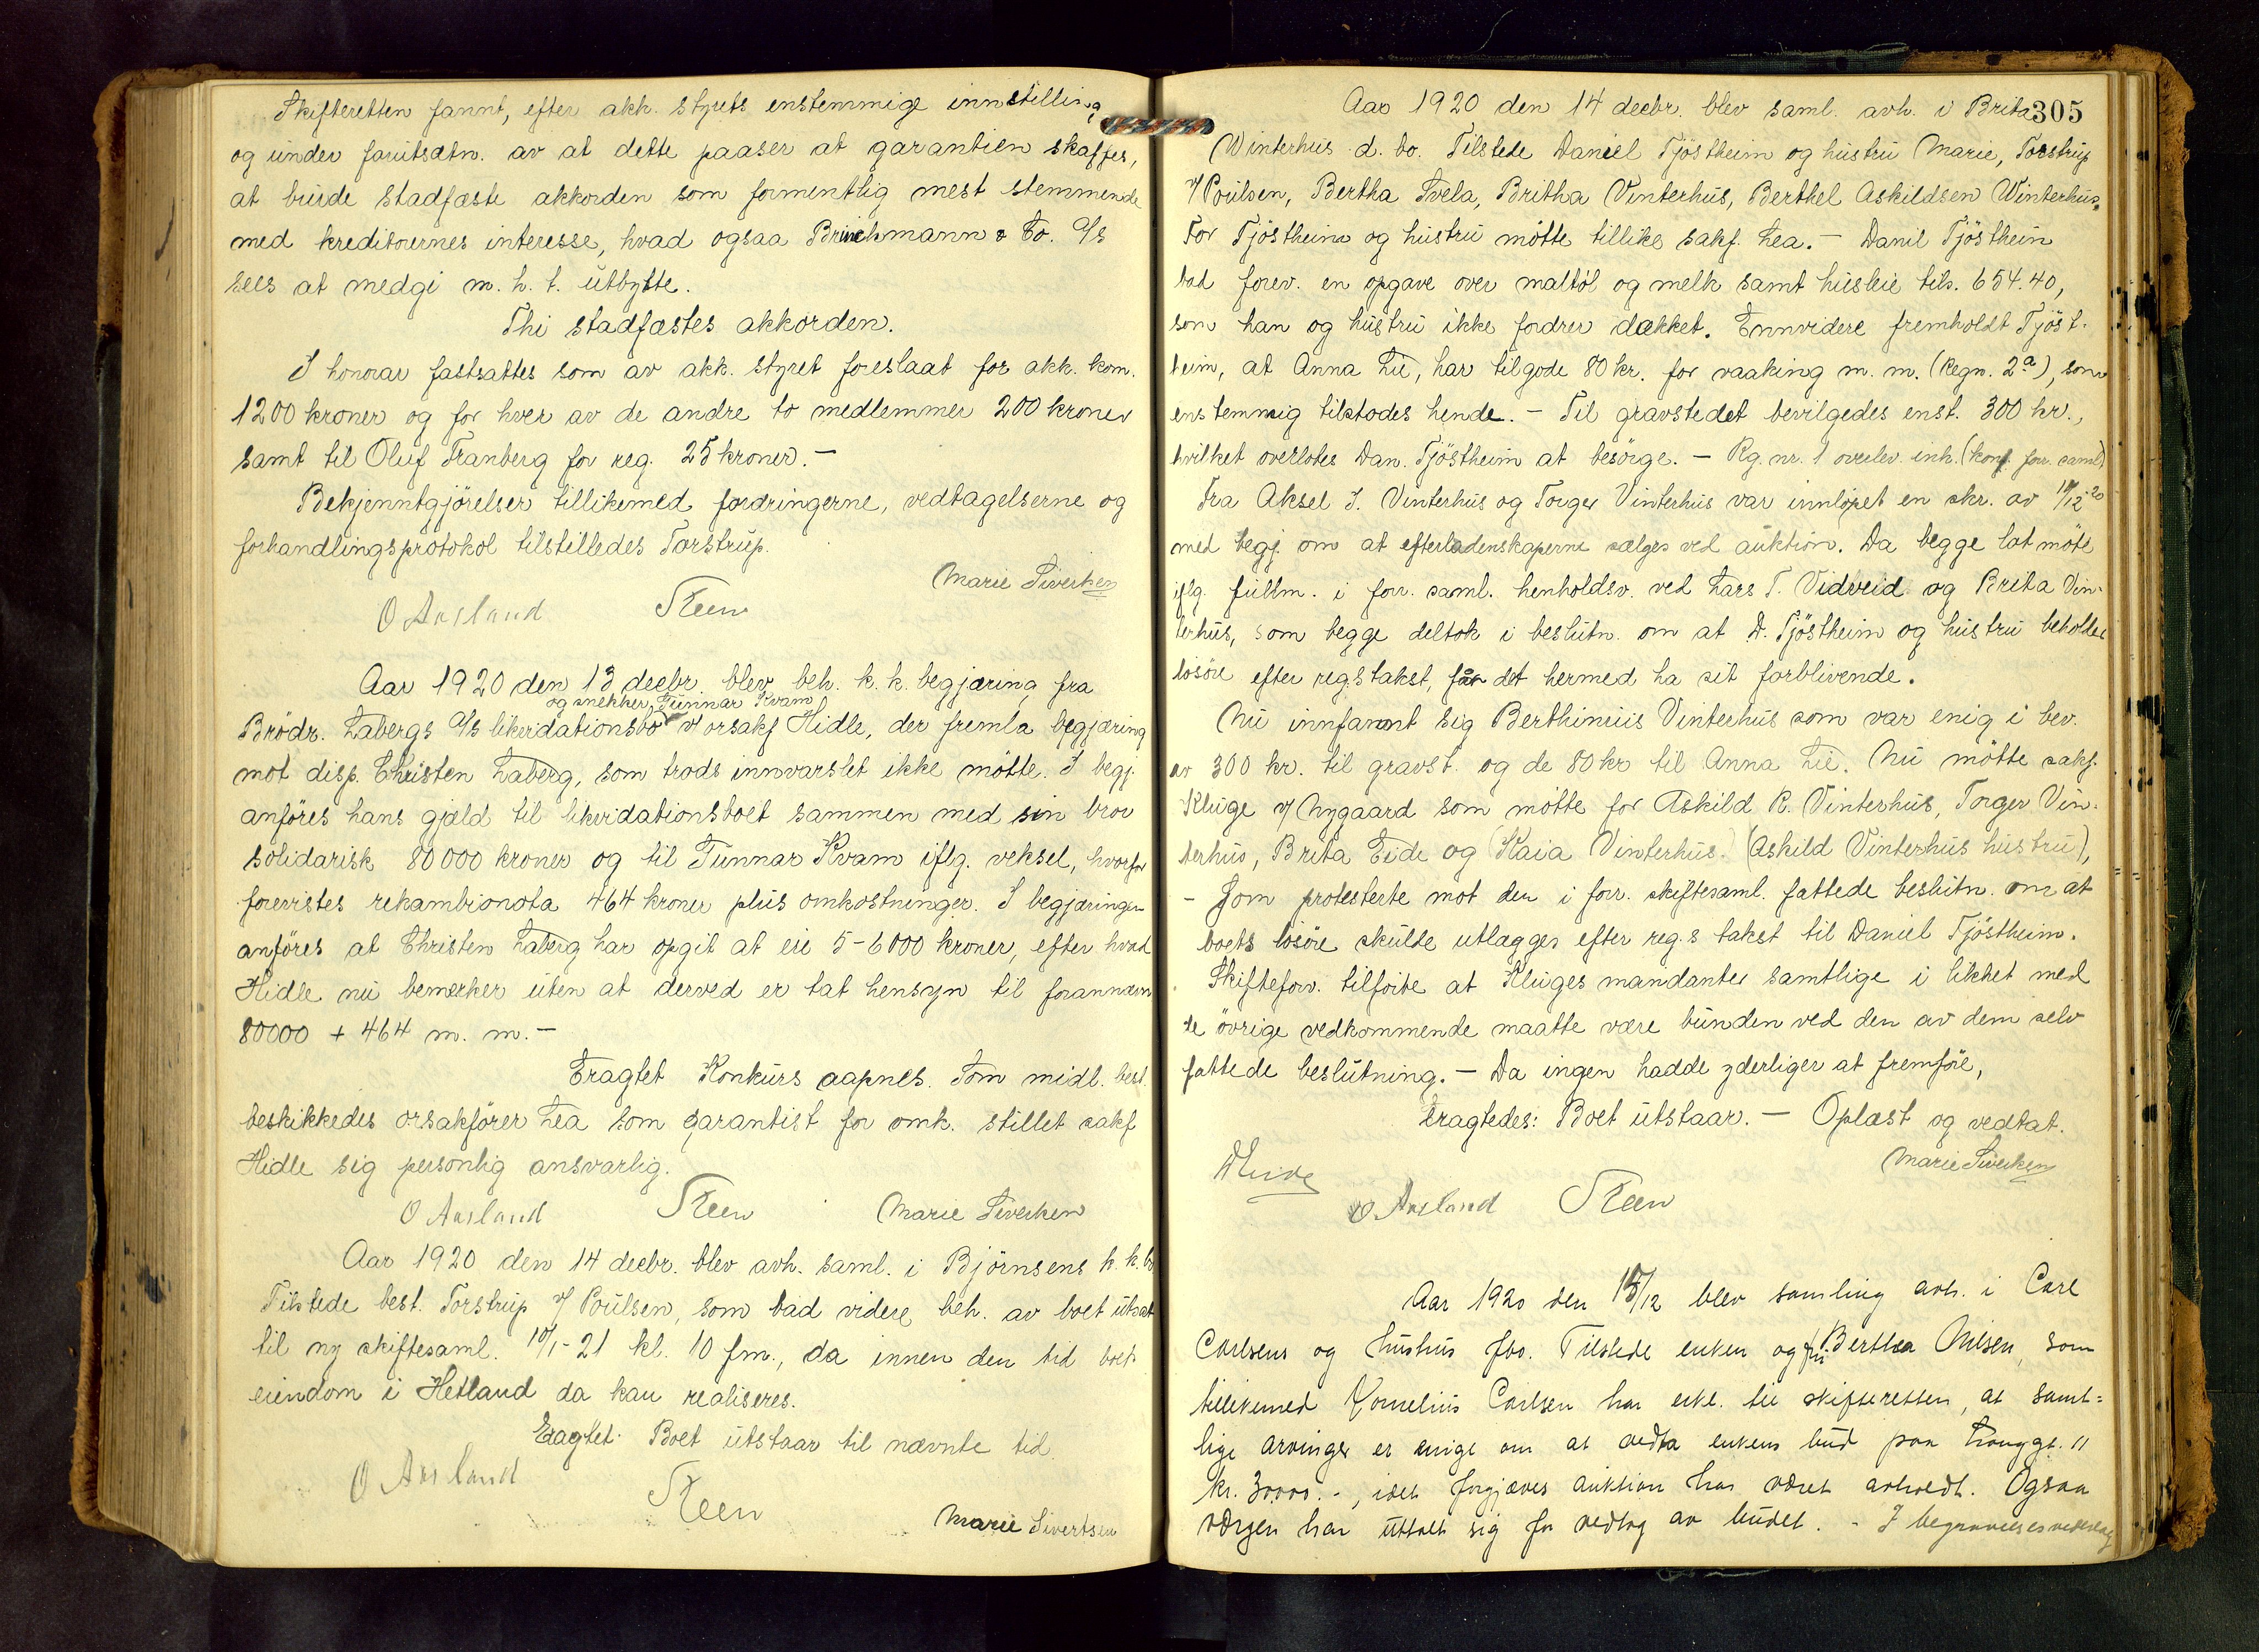 Skifteretten fannt, efter akk. styrets enstemmige innstilling
og under forutsætn. av at dette paaser at garantien skaffes,
at burde stadfæste akkorden som formentlig mest stemmende
med kreditorernes interesse, hvad ogsaa Brinchmann & Co. A/s
sees at medgi m. h. t. utbytte.
Thi stadfæstes akkorden.
I honorar fastsattes som av akk. styret foreslaat for akk. kom.
1200 kroner og for hver av de andre to medlemmer 200 kroner
samt til Oluf Tranberg for reg. 25 kroner.-
Bekjenntgjörelser tillikemed fordringerne, vedtagelserne og
forhandlingsprotokol tilstilledes Torstrup.
Marie Sivertsen
O Aarsland Steen
Aar 1920 den 13 decbr. blev beh. k. k. begjæring fra
og snekker Gunnar Kvam
Brödr. Labergs A/s likvidationsbo v/ orsakf Hidle, der fremla begjæring
mot disp. Christen Laberg, som trods innvarslet ikke mötte. I begj.
anföres hans gjæld til likvidationsboet sammen med sin bror
solidarisk 80000 kroner og til Gunnar Kvam iflg. veksel, hvorfor
forevistes rekambionota 464 kroner plus omkostninger. I begjæringen
anföres at Christen Laberg har opgit at eie 5-6000 kroner, efter hvad
Hidle nu bemerker uten at derved er tat hensyn til forannævn
80000 + 464 m. m.-
Eragtet Konkurs aapnes. Som midl. best.
beskikkedes orsakförer Lea som garantist for omk. stillet sakf
Hidle sig personlig ansvarlig.
O Aarsland Steen Marie Sivertsen
Aar 1920 den 14 decbr. blev avh. saml. i Björnsens k. k. bo
Tilstede best. Torstrup v/ Poulsen, som bad videre beh. av boet utsat
til ny skiftesaml. 10/1-21 kl. 10 fm., da innen den tid boets
eiendom i Hetland da kan realiseres.
Eragtet: Boet utstaar til nævnte tid.
O Aarsland
Steen
Marie Sivertsen
305
Aar 1920 den 14 decbr. blev saml. avh. i Brita
Winterhus d. bo. Tilstede Daniel Tjöstheim og hustru Marie, Torstrup
v/ Poulsen, Bertha Tvela, Britha Vinterhus, Berthel Askildsen Winterhus.
For Tjöstheim og hustru mötte tillike sakf. Lea.- Danil Tjöstheim
bad forev. en opgave over maltöl og melk samt husleie tils. 654.40,
som han og hustru ikke fordrer dækket. Ennvidere fremholdt Tjöst-
heim, at Anna Lie, har tilgode 80 kr. for vaaking m. m. (Regn. 2a), som
enstemmig tilstodes hende.- Til gravstedet bevilgedes enst. 300 kr.,
hvilket overlotes Dan. Tjöstheim at besörge.- Rg. nr. 1 overlev. inh. (konf. forr. saml)
Fra Aksel I. Vinterhus og Torger Vinterhus var innlöpet en skr. av 10/12-20
med begj. om at efterladenskaperne sælges ved auktion. Da begge lot möte
iflg. fullm. i forr. saml. henholdsv. ved Lars T. Vidveid og Brita Vin-
terhus, som begge deltok i beslutn. om at D. Tjöstheim og hustru beholder
lösöre efter reg.s takst, får det hermed ha sit forblivende.
Nu innfannt sig Berthinius Vinterhus som var enig i bev.
av 300 kr. til gravst. og de 80 kr til Anna Lie. Nu mötte sakf.
Kluge v/ Nygaard som mötte for Askild R. Vinterhus, Torger Vin-
terhus, Brita Eide og Kaia Vinterhus. (Askild Vinterhus hustru),
- Som protesterte mot den i forr. skiftesaml. fattede beslutn. om at
boets lösöre skulde utlægges efter reg.s takst til Daniel Tjöstheim.
Skifteforv. tilföite at Kluges mandanter samtlige i likhet med
de övrige vedkommende maatte være bunden ved den av dem selv
fattede beslutning.- Da ingen hadde yderliger at fremföre,
Eragtedes: Boet utstaar.- Oplæst og vedtat.
Marie Sivertsen
O Aarsland Steen
Aar 1920 den 15/12 blev samling avh. i Carl
Carlsens og hustrus fbo. Tilstede enken og fru Berthea Nilsen, som
tillikemed Kornelius Carlsen har erkl. til skifteretten, at samt-
lige arvinger er enige om at vedta enkens bud paa Langgt. 11
kr. 30000.-, idet forgjæves auktion har været avholdt. Ogsaa
værgen har uttalt sig for vedtag av budet. - I begravelsesvederlag